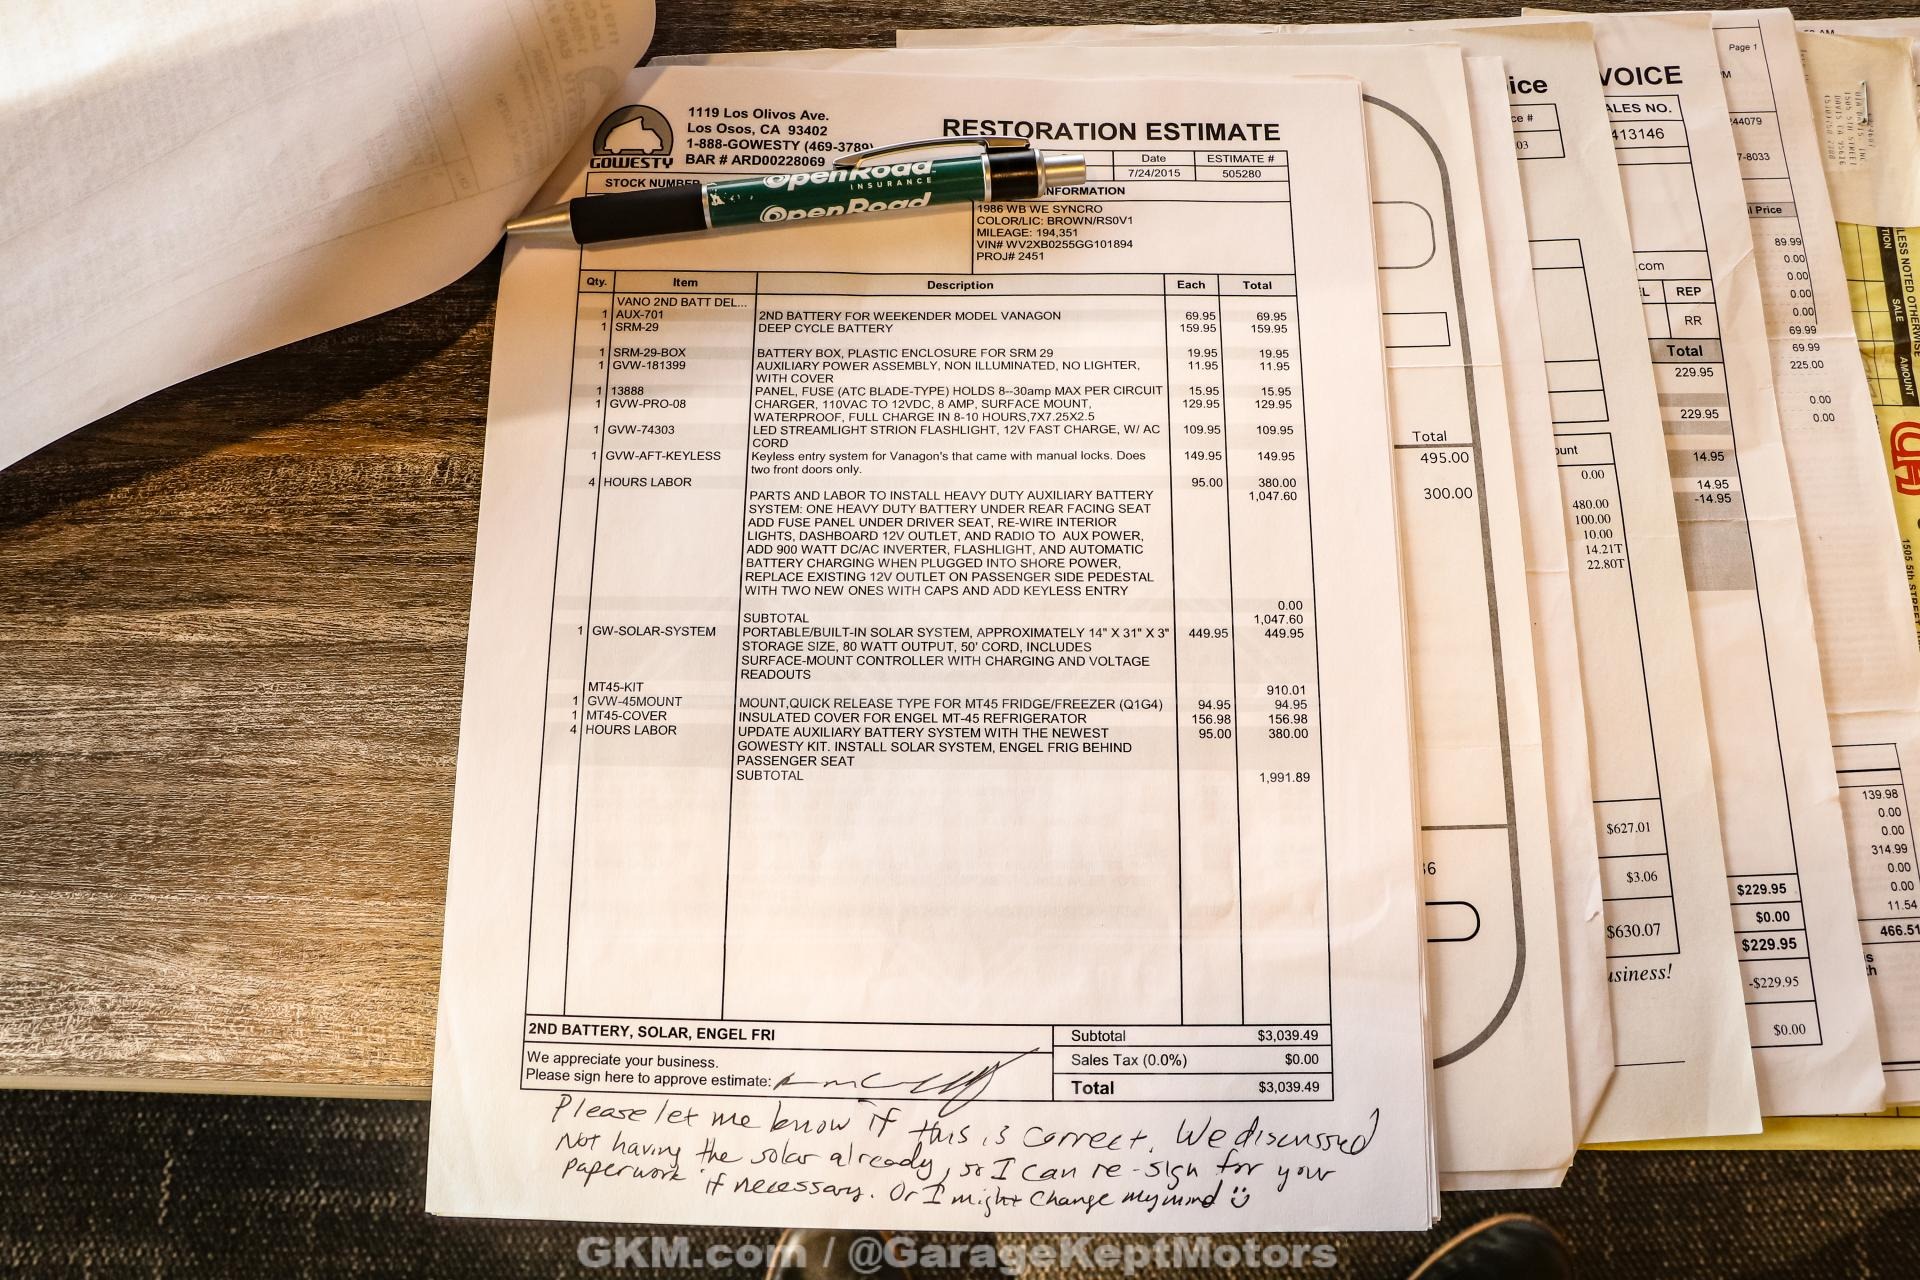 GOWESTY
1119 Los Olivos Ave.
Los Osos, CA 93402
1-888-GOWESTY (469-3789)
BAR # ARD00228069
RESTORATION ESTIMATE
Date ESTIMATE #
7/24/2015 505280
STOCK NUMBER
NFORMATION
OpenRoad
INSURANCE
OpenRoad
1986 WB WE SYNCRO
COLOR/LIC: BROWN/RS0V1
MILEAGE: 194,351
VIN# WV2XB0255GG101894
PROJ# 2451
Qty. Item Description Each Total
VANO 2ND BATT DEL...
1 AUX-701 2ND BATTERY FOR WEEKENDER MODEL VANAGON 69.95 69.95
1 SRM-29 DEEP CYCLE BATTERY 159.95 159.95
1 SRM-29-BOX BATTERY BOX, PLASTIC ENCLOSURE FOR SRM 29 19.95 19.95
1 GVW-181399 AUXILIARY POWER ASSEMBLY, NON ILLUMINATED, NO LIGHTER, 11.95 11.95
WITH COVER
1 13888 PANEL, FUSE (ATC BLADE-TYPE) HOLDS 8--30amp MAX PER CIRCUIT 15.95 15.95
1 GVW-PRO-08 CHARGER, 110VAC TO 12VDC, 8 AMP, SURFACE MOUNT, 129.95 129.95
WATERPROOF, FULL CHARGE IN 8-10 HOURS,7X7.25X2.5
1 GVW-74303 LED STREAMLIGHT STRION FLASHLIGHT, 12V FAST CHARGE, W/ AC 109.95 109.95
CORD
1 GVW-AFT-KEYLESS Keyless entry system for Vanagon's that came with manual locks. Does 149.95 149.95
two front doors only.
4 HOURS LABOR 95.00 380.00
PARTS AND LABOR TO INSTALL HEAVY DUTY AUXILIARY BATTERY 1,047.60
SYSTEM: ONE HEAVY DUTY BATTERY UNDER REAR FACING SEAT
ADD FUSE PANEL UNDER DRIVER SEAT, RE-WIRE INTERIOR
LIGHTS, DASHBOARD 12V OUTLET, AND RADIO TO AUX POWER,
ADD 900 WATT DC/AC INVERTER, FLASHLIGHT, AND AUTOMATIC
BATTERY CHARGING WHEN PLUGGED INTO SHORE POWER,
REPLACE EXISTING 12V OUTLET ON PASSENGER SIDE PEDESTAL
WITH TWO NEW ONES WITH CAPS AND ADD KEYLESS ENTRY
0.00
SUBTOTAL 1,047.60
1 GW-SOLAR-SYSTEM PORTABLE/BUILT-IN SOLAR SYSTEM, APPROXIMATELY 14" X 31" X 3" 449.95 449.95
STORAGE SIZE, 80 WATT OUTPUT, 50' CORD, INCLUDES
SURFACE-MOUNT CONTROLLER WITH CHARGING AND VOLTAGE
READOUTS
MT45-KIT 910.01
1 GVW-45MOUNT MOUNT,QUICK RELEASE TYPE FOR MT45 FRIDGE/FREEZER (Q1G4) 94.95 94.95
1 MT45-COVER INSULATED COVER FOR ENGEL MT-45 REFRIGERATOR 156.98 156.98
4 HOURS LABOR UPDATE AUXILIARY BATTERY SYSTEM WITH THE NEWEST 95.00 380.00
GOWESTY KIT. INSTALL SOLAR SYSTEM, ENGEL FRIG BEHIND
PASSENGER SEAT
SUBTOTAL 1,991.89
2ND BATTERY, SOLAR, ENGEL FRI
Subtotal $3,039.49
We appreciate your business.
Sales Tax (0.0%) $0.00
Please sign here to approve estimate:
Total $3,039.49
Please let me know if this is correct. We discussed
Not having the solar already, so I can re-sign for your
paperwork if necessary. Or I might change my mind
Total
495.00
300.00
ice
03
ount
0.00
480.00
100.00
10.00
14.21T
22.80T
$627.01
$3.06
$630.07
usiness!
VOICE
ALES NO.
413146
.com
L REP
RR
Total
229.95
229.95
14.95
14.95
-14.95
$229.95
$0.00
$229.95
-$229.95
$0.00
Page 1
44079
7-8033
l Price
89.99
0.00
0.00
0.00
0.00
69.99
69.99
225.00
0.00
0.00
139.98
0.00
0.00
314.99
0.00
0.00
11.54
466.51
LESS NOTED OTHERWISE
SALE
AMOUNT
GKM.com / @GarageKeptMotors